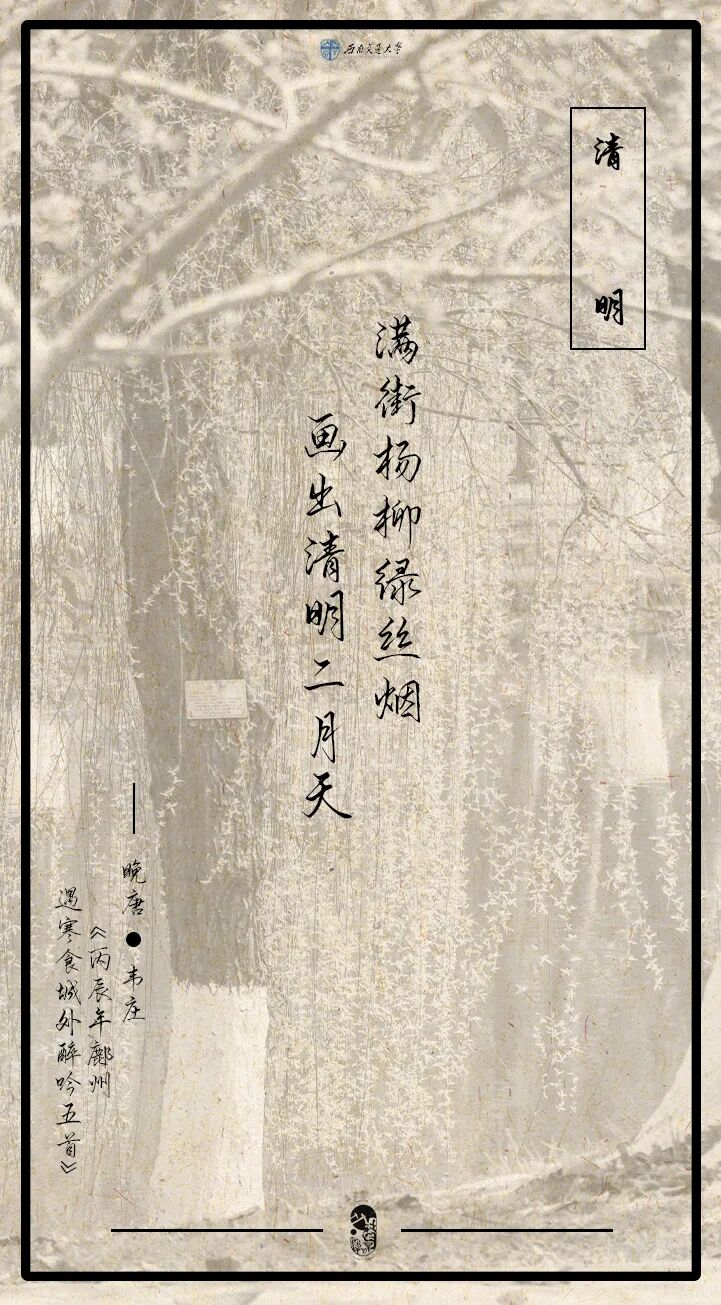 西南交通大学
清明
满街杨柳绿丝烟
画出清明二月天
晚唐●韦庄
《丙辰年鄜州
遇寒食城外醉吟五首》